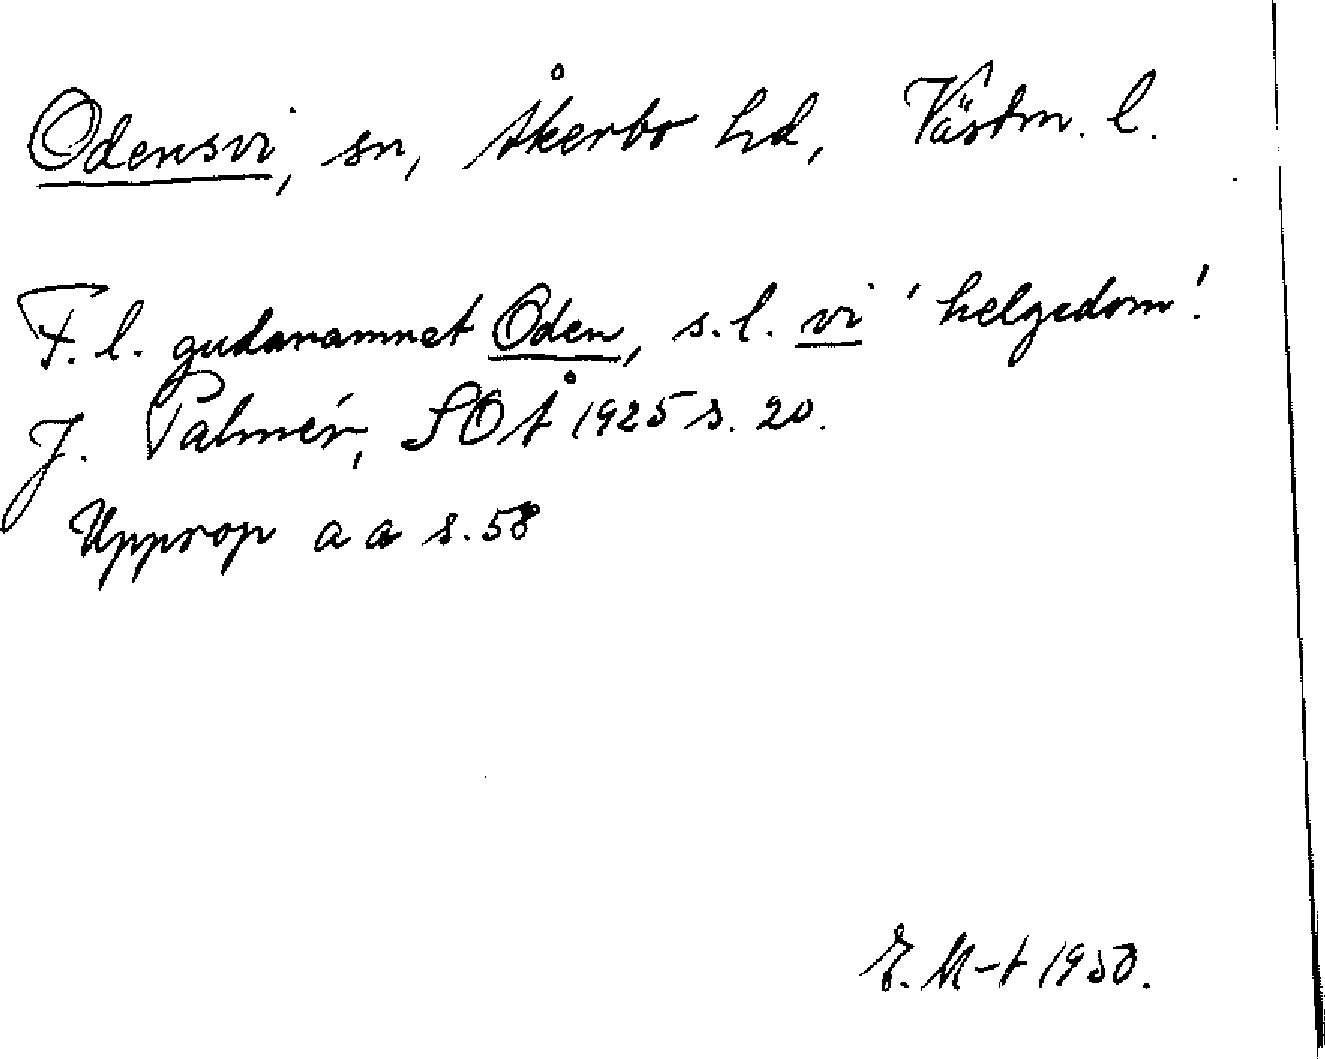 Odensvi, sn, Åkerbo hd, Västm. l.
F. l. gudanamnet Oden, s. l. vi 'helgedom'.
J. Palmér, SOÅ 1925 s. 20.
Upprop a a s. 58
E. M-t 1950.